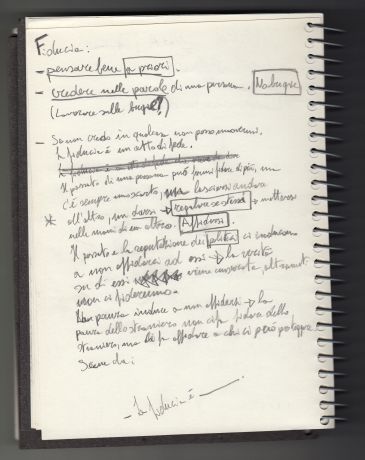 Fiducia:
- pensare bene a priori.
- credere nelle parole di una persona. No bugie
(Lavorare sulle bugie!)
- Se non credo in qualcosa non posso muovermi.
La fiducia è un atto di fede.
Il passato di una persona può farmi fidare di più, ma
c'è sempre incoscienza, un lasciarsi andare
* all'altro, un darsi → regalare se stessi → mettersi
nelle mani di un altro. Affidarsi.
Il passato e la reputazione dei politici ci inducono
a non affidarci ad essi → la verità
su di essi viene
non ci fideremmo.
paura induce a non affidarsi → la
paura dello straniero non ci fa fidare dello
straniero, ma ci fa affidare a chi ci può proteggere.
- la fiducia è